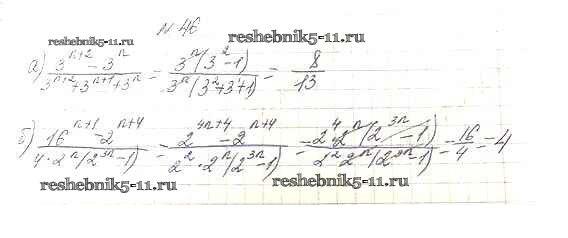 № 46
reshebnik5-11.ru
reshebnik5-11.ru
а) (3^(n+2) - 3^n) / (3^(n+2) + 3^(n+1) + 3^n) = 3^n(3^2 - 1) / 3^n(3^2 + 3 + 1) = 8/13
б) (16^(n+1) - 2^(n+4)) / (4·2^n(2^(3n) - 1)) = (2^(4n+4) - 2^(n+4)) / (2^2·2^n(2^(3n) - 1)) = 2^4·2^n(2^(3n) - 1) / 2^2·2^n(2^(3n) - 1) = 16/4 = 4
reshebnik5-11.ru
reshebnik5-11.ru